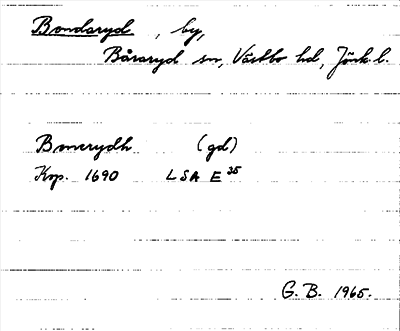 Bondaryd , by,
Båraryd sn, Västbo hd, Jönk. l.
Bonerydh (gd)
Kop. 1690 LSA E 35
G. B. 1965.